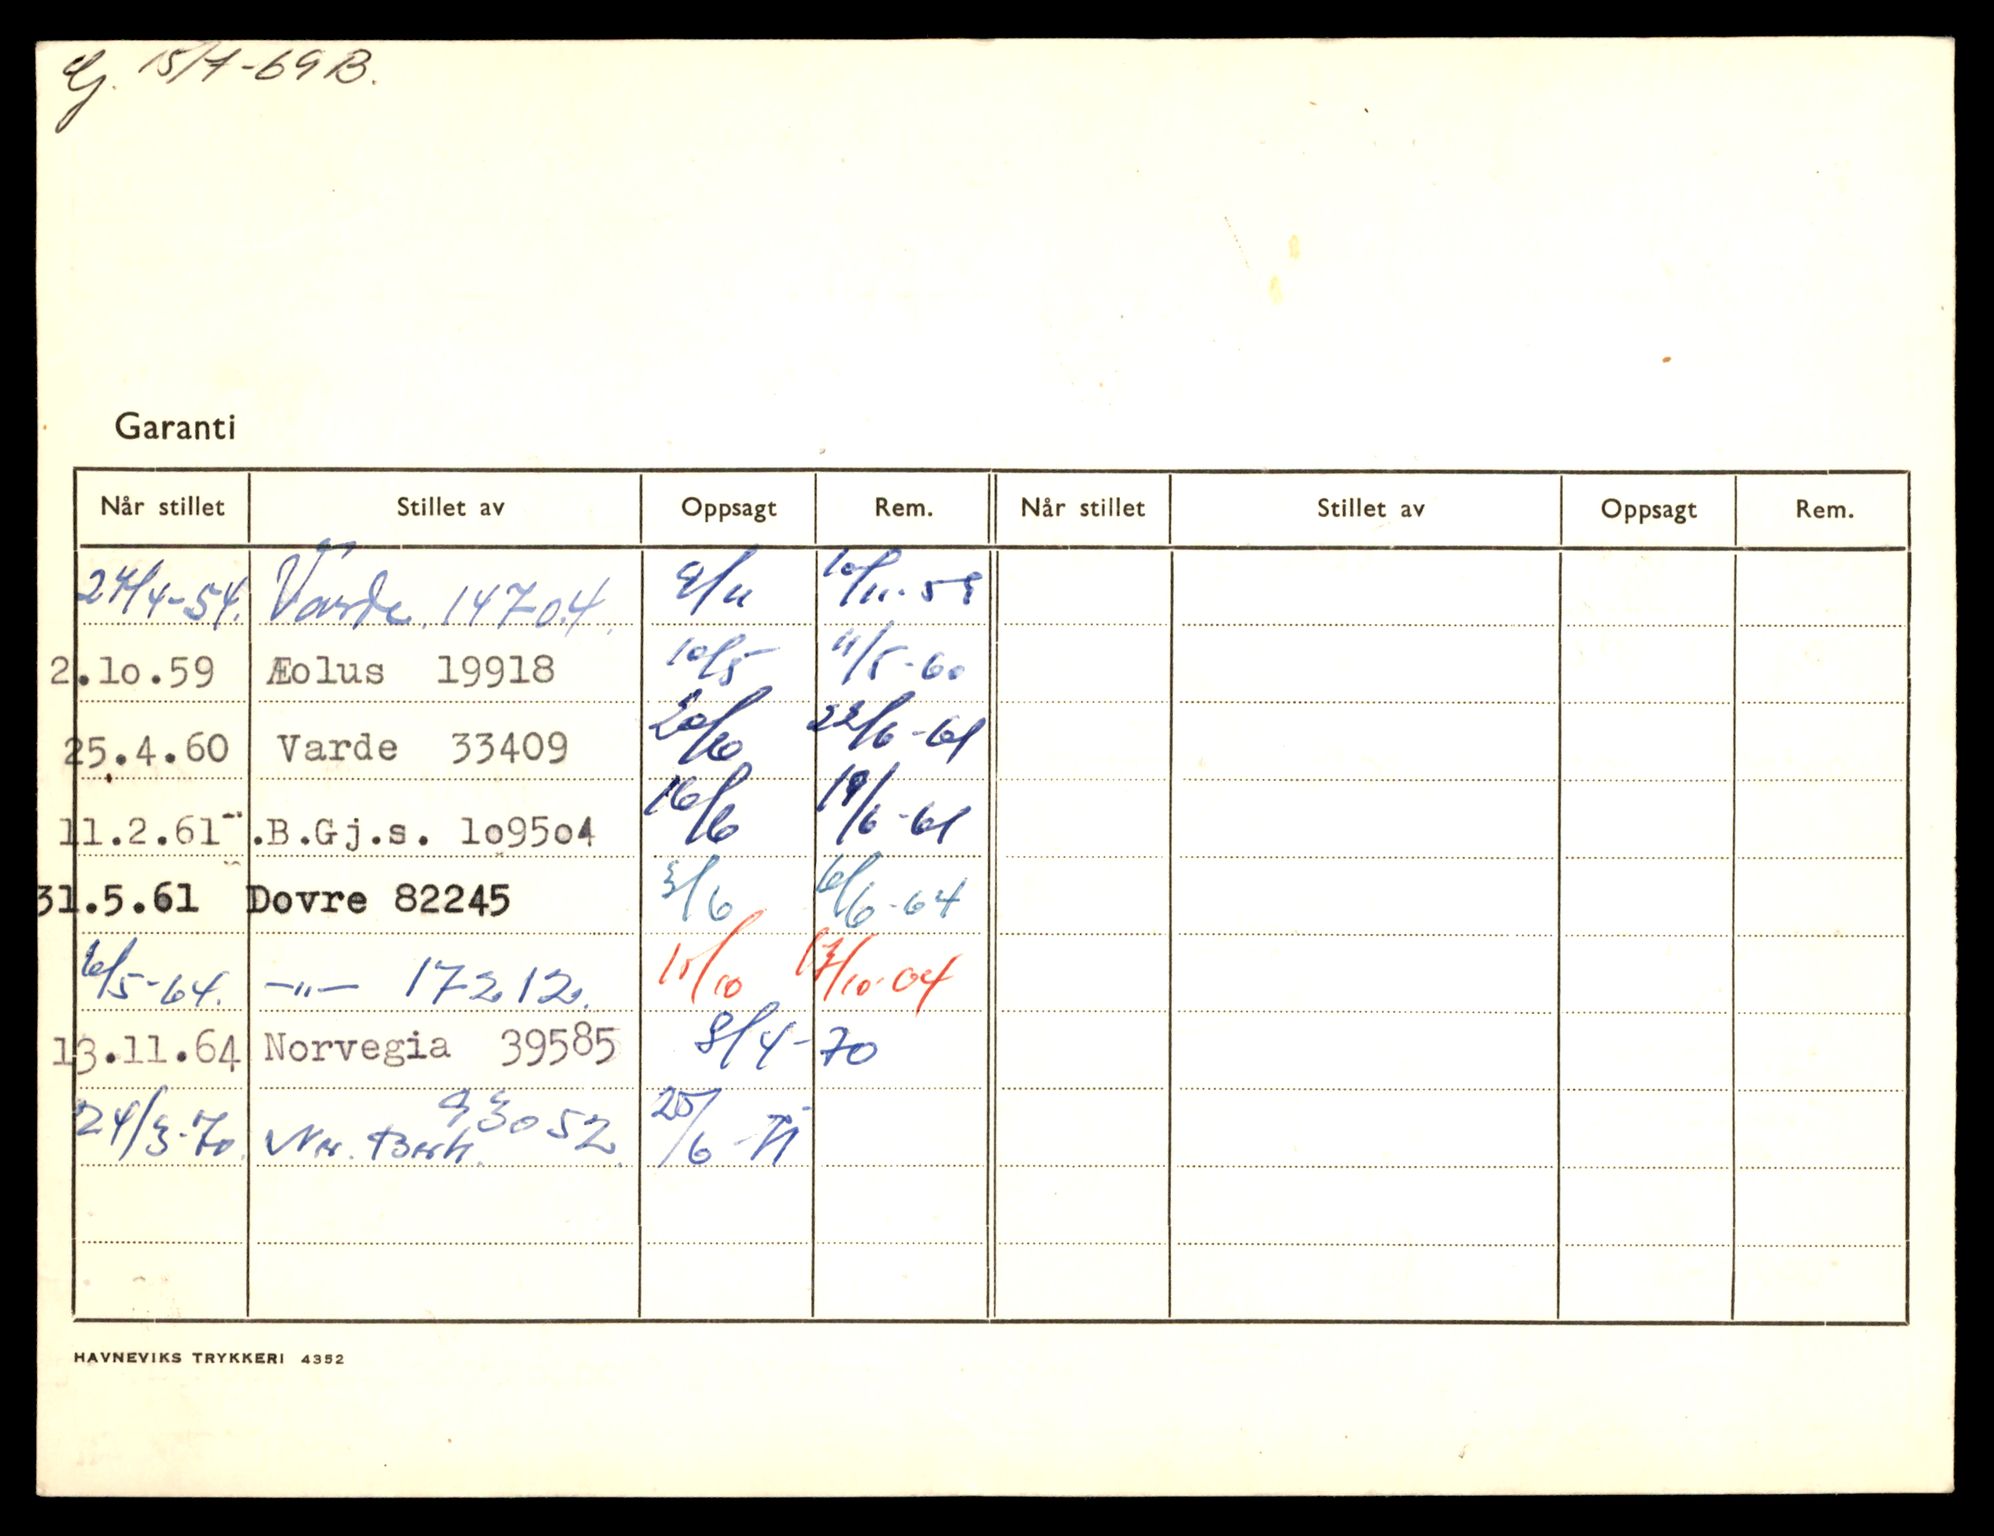 Gj. 15/7-69 B.
Garanti
Når stillet Stillet av Oppsagt Rem. Når stillet Stillet av Oppsagt Rem.
24/4-54. Varde 14704. 9/11 10/11-59
2.10.59 Æolus 19918 10/5 11/5-60
25.4.60 Varde 33409 20/6 22/6-61
11.2.61 .B.Gj.s. 109504 16/6 19/6-61
31.5.61 Dovre 82245 3/6 6/6-64
6/5-64. -"- 17212. 15/10 17/10-64
13.11.64 Norvegia 39585 8/4-70
24/3-70. 93052. 25/6-71
HAVNEVIKS TRYKKERI 4352